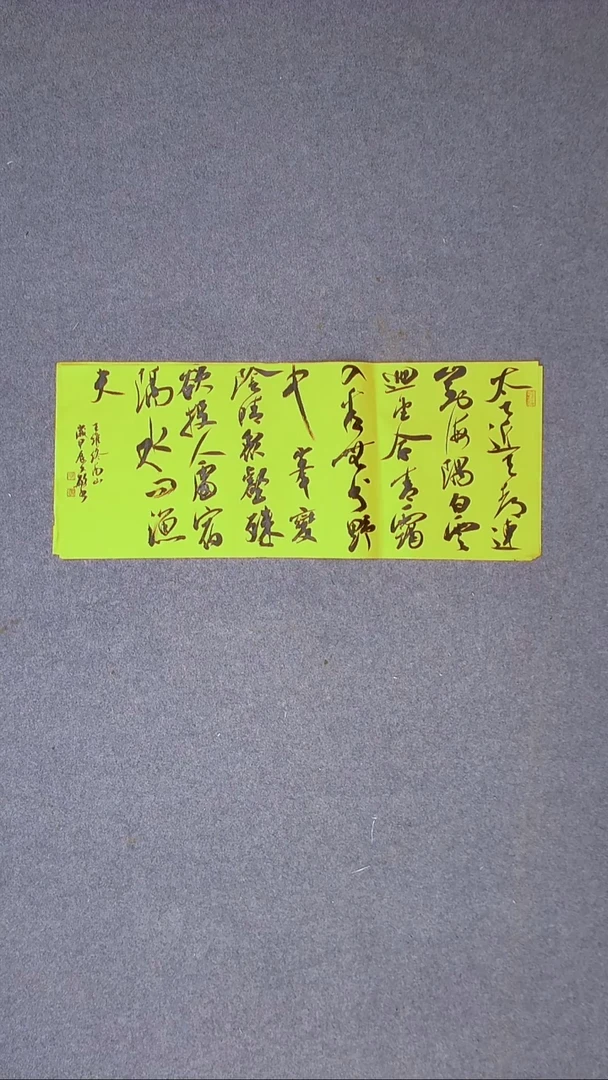 太乙近天都連
山到海隅白雲
迴望合青靄
入看無分野
中峯變
陰晴衆壑殊
欲投人處宿
隔水問漁
夫
王維終南山
歲甲辰書